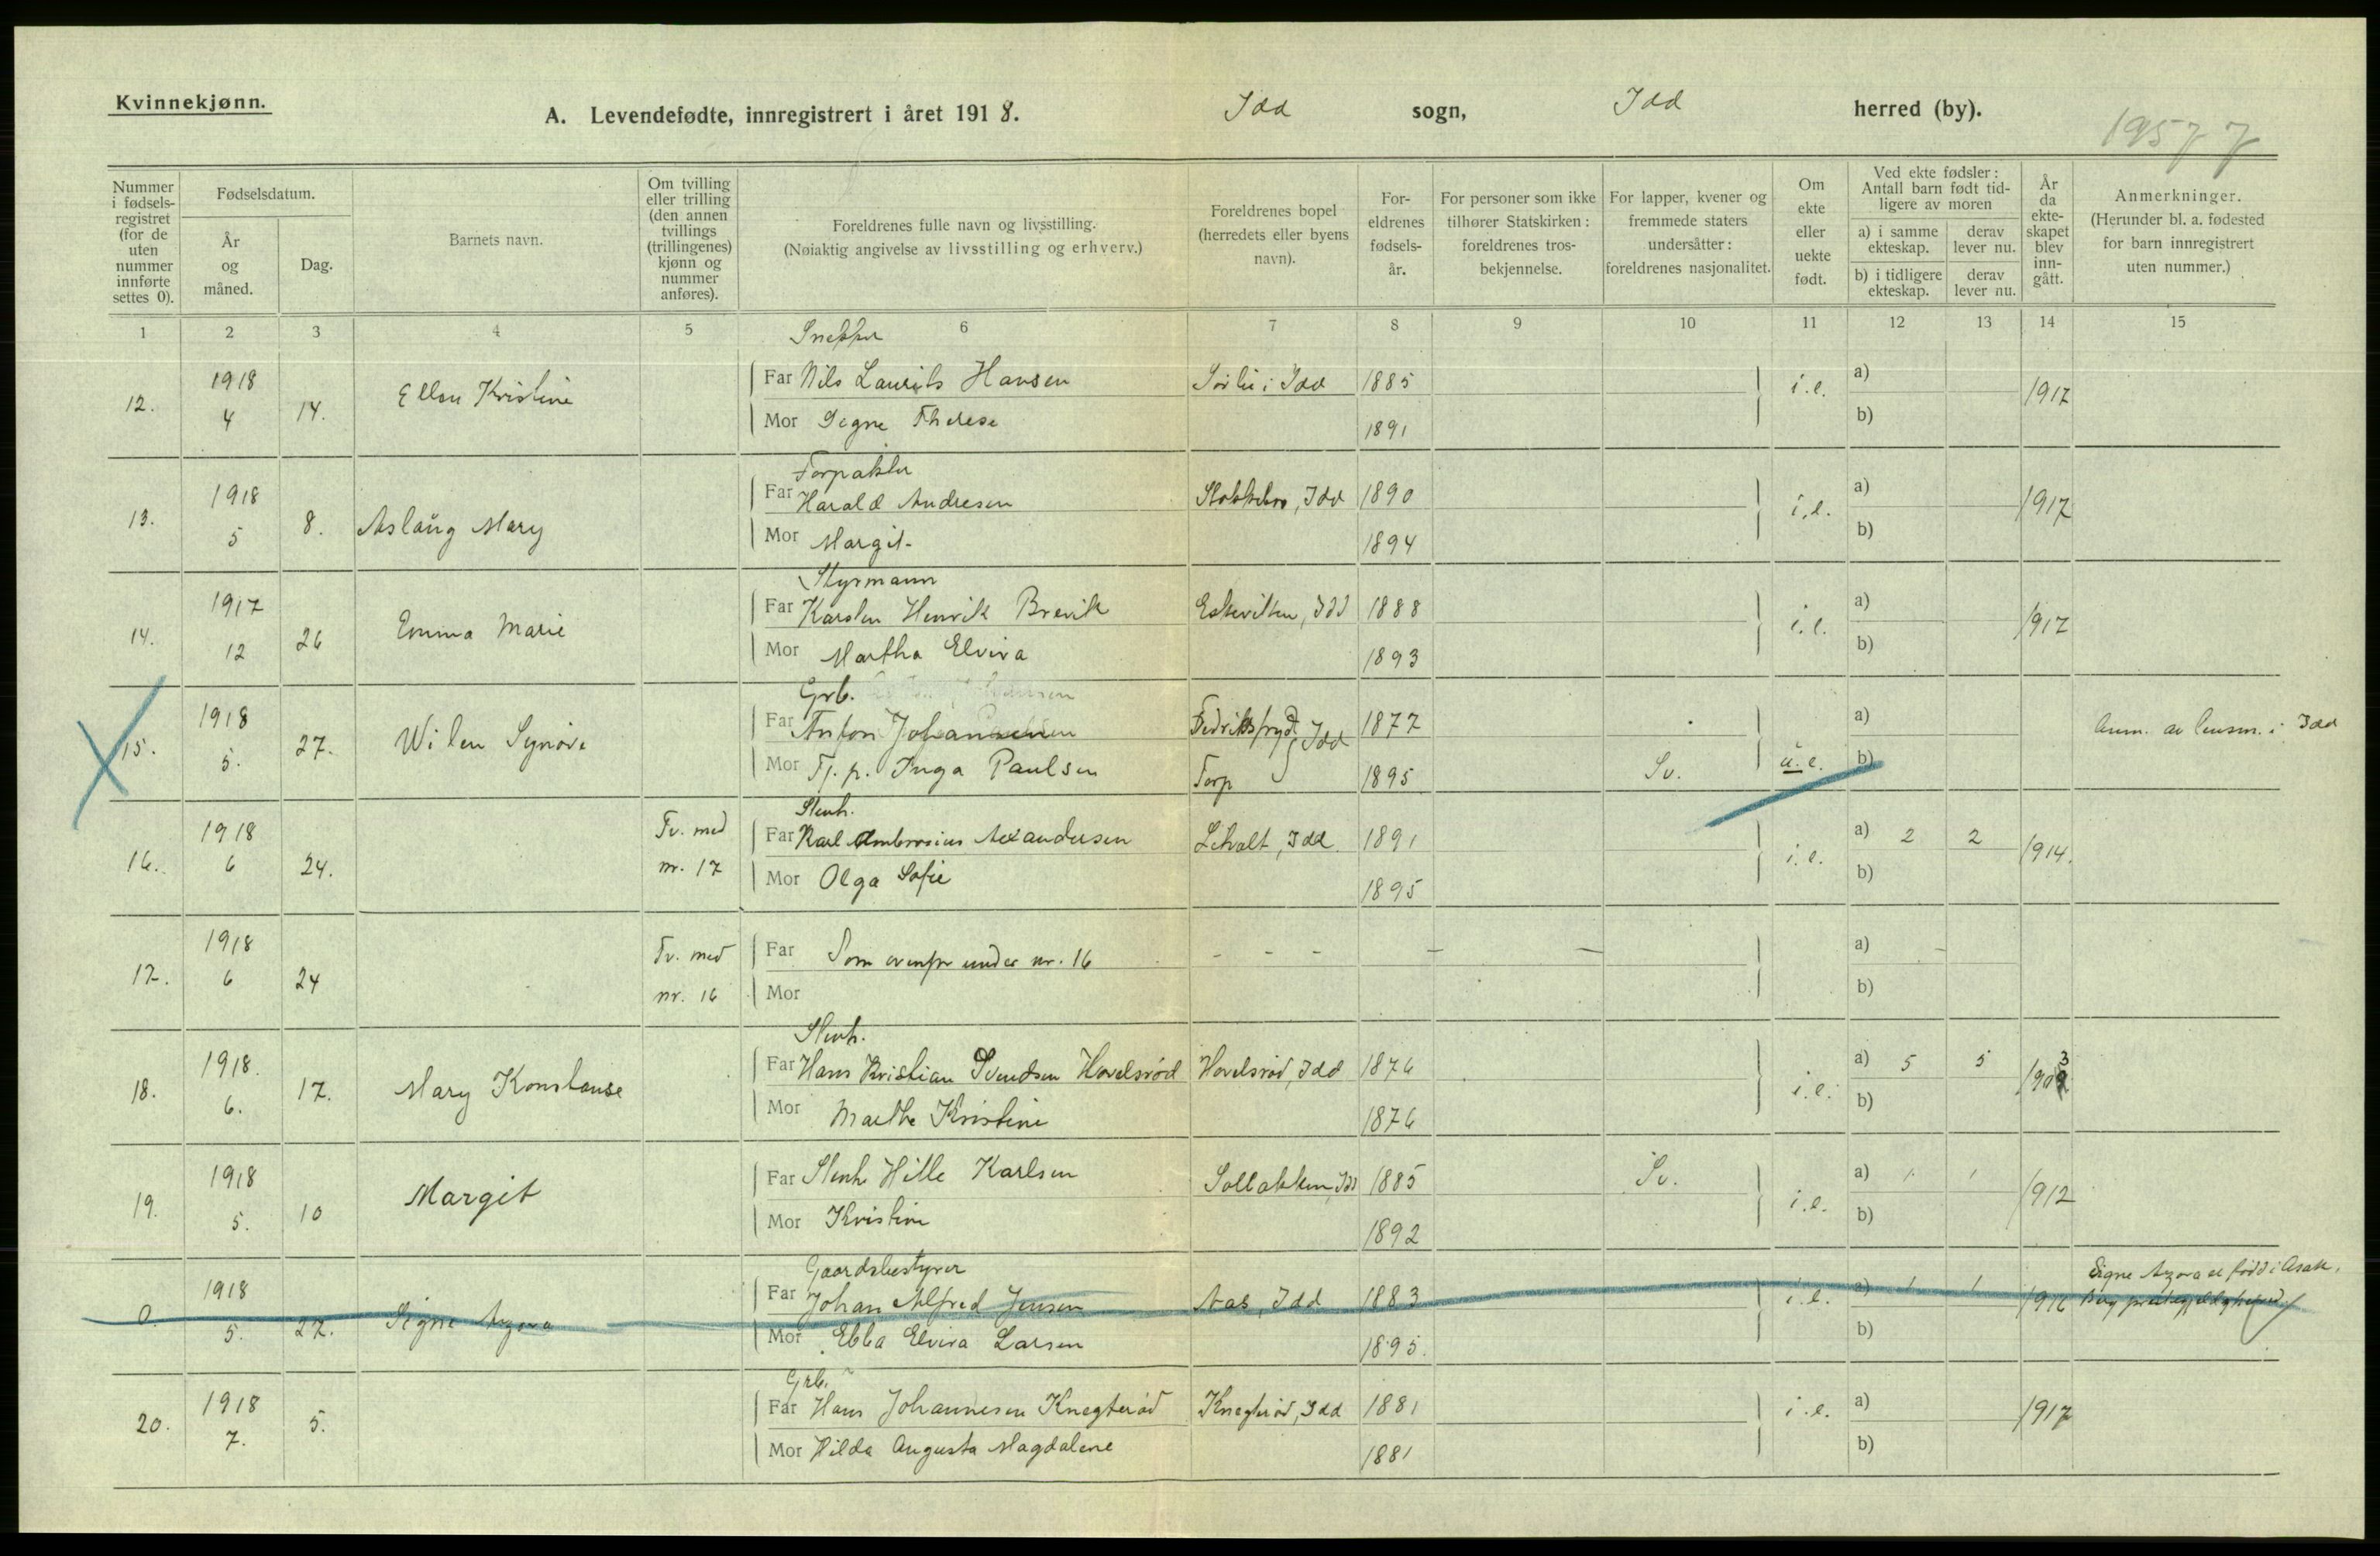 Kvinnekjønn.
A. Levendefødte, innregistrert i året 1918. Idd sogn, Idd herred (by).
19577
Nummer i fødsels-registret (for de uten nummer innførte settes 0).
Fødselsdatum.
År og måned.
Dag.
Barnets navn.
Om tvilling eller trilling (den annen tvillings (trillingenes) kjønn og nummer anføres).
Foreldrenes fulle navn og livsstilling.
(Nøiaktig angivelse av livsstilling og erhverv.)
Foreldrenes bopel (herredets eller byens navn).
For-eldrenes fødsels-år.
For personer som ikke tilhører Statskirken: foreldrenes tros-bekjennelse.
For lapper, kvener og fremmede staters undersåtter: foreldrenes nasjonalitet.
Om ekte eller uekte født.
Ved ekte fødsler: Antall barn født tid-ligere av moren
a) i samme ekteskap.
derav lever nu.
b) i tidligere ekteskap.
derav lever nu.
År da ekte-skapet blev inn-gått.
Anmerkninger.
(Herunder bl. a. fødested for barn innregistrert uten nummer.)
1 2 3 4 5 6 7 8 9 10 11 12 13 14 15
Snekker
12. 1918 4 14. Ellen Kristine Far Nils Laurits Hansen Sørlie i Idd 1885 i.e. a) 1917
Mor Signe Therese 1891 b)
Forpakter
13. 1918 5 8. Aslaug Mary Far Harald Andresen Stokkebro, Idd 1890 i.e. a) 1917
Mor Margit 1894 b)
Styrmann
14. 1917 12 26 Emma Marie Far Karsten Henrik Brevik Eskeviken, Idd 1888 i.e. a) 1917
Mor Martha Elvira 1893 b)
Grb.
15. 1918 5. 27. Wilen Synøve Far Anton Johansen Fredriksfryd Idd 1877 u.e. a) Anm. av lensm. i Idd
Mor Tj. p. Inga Paulsen Torp 1895 Sv. b)
Stenh.
16. 1918 6 24. Tv. med nr. 17 Far Karl Ambrosius Alexandersen Liholt, Idd 1891 i.e. a) 2 2 1914.
Mor Olga Sofie 1895 b)
17. 1918 6 24 Tv. med nr. 16 Far Som ovenfor under nr. 16 - - - a)
Mor b)
Stenh.
18. 1918. 6. 17. Mary Konstanse Far Hans Kristian Svendsen Hovelsrød Hovelsrød, Idd 1876 i.e. a) 5 5 1903
Mor Marthe Kristine 1876 b)
19. 1918 5. 10 Margit Far Stenh. Hille Karlsen Solbakken, Idd 1885 Sv. i.e. a) 1 1 1912
Mor Kristine 1892 b)
Gaardsbestyrer
0. 1918 5. 27. Signe Far Johan Alfred Jensen Aas, Idd 1883 i.e. a) 1 1 1916 Signe er født i Asak, Berg
Mor Ebba Elvira Larsen 1895. b)
Grb.
20. 1918 7. 5. Far Hans Johannesen Knegterød Knegterød, Idd 1881 i.e. a) 1917
Mor Hilda Augusta Magdalene 1881 b)